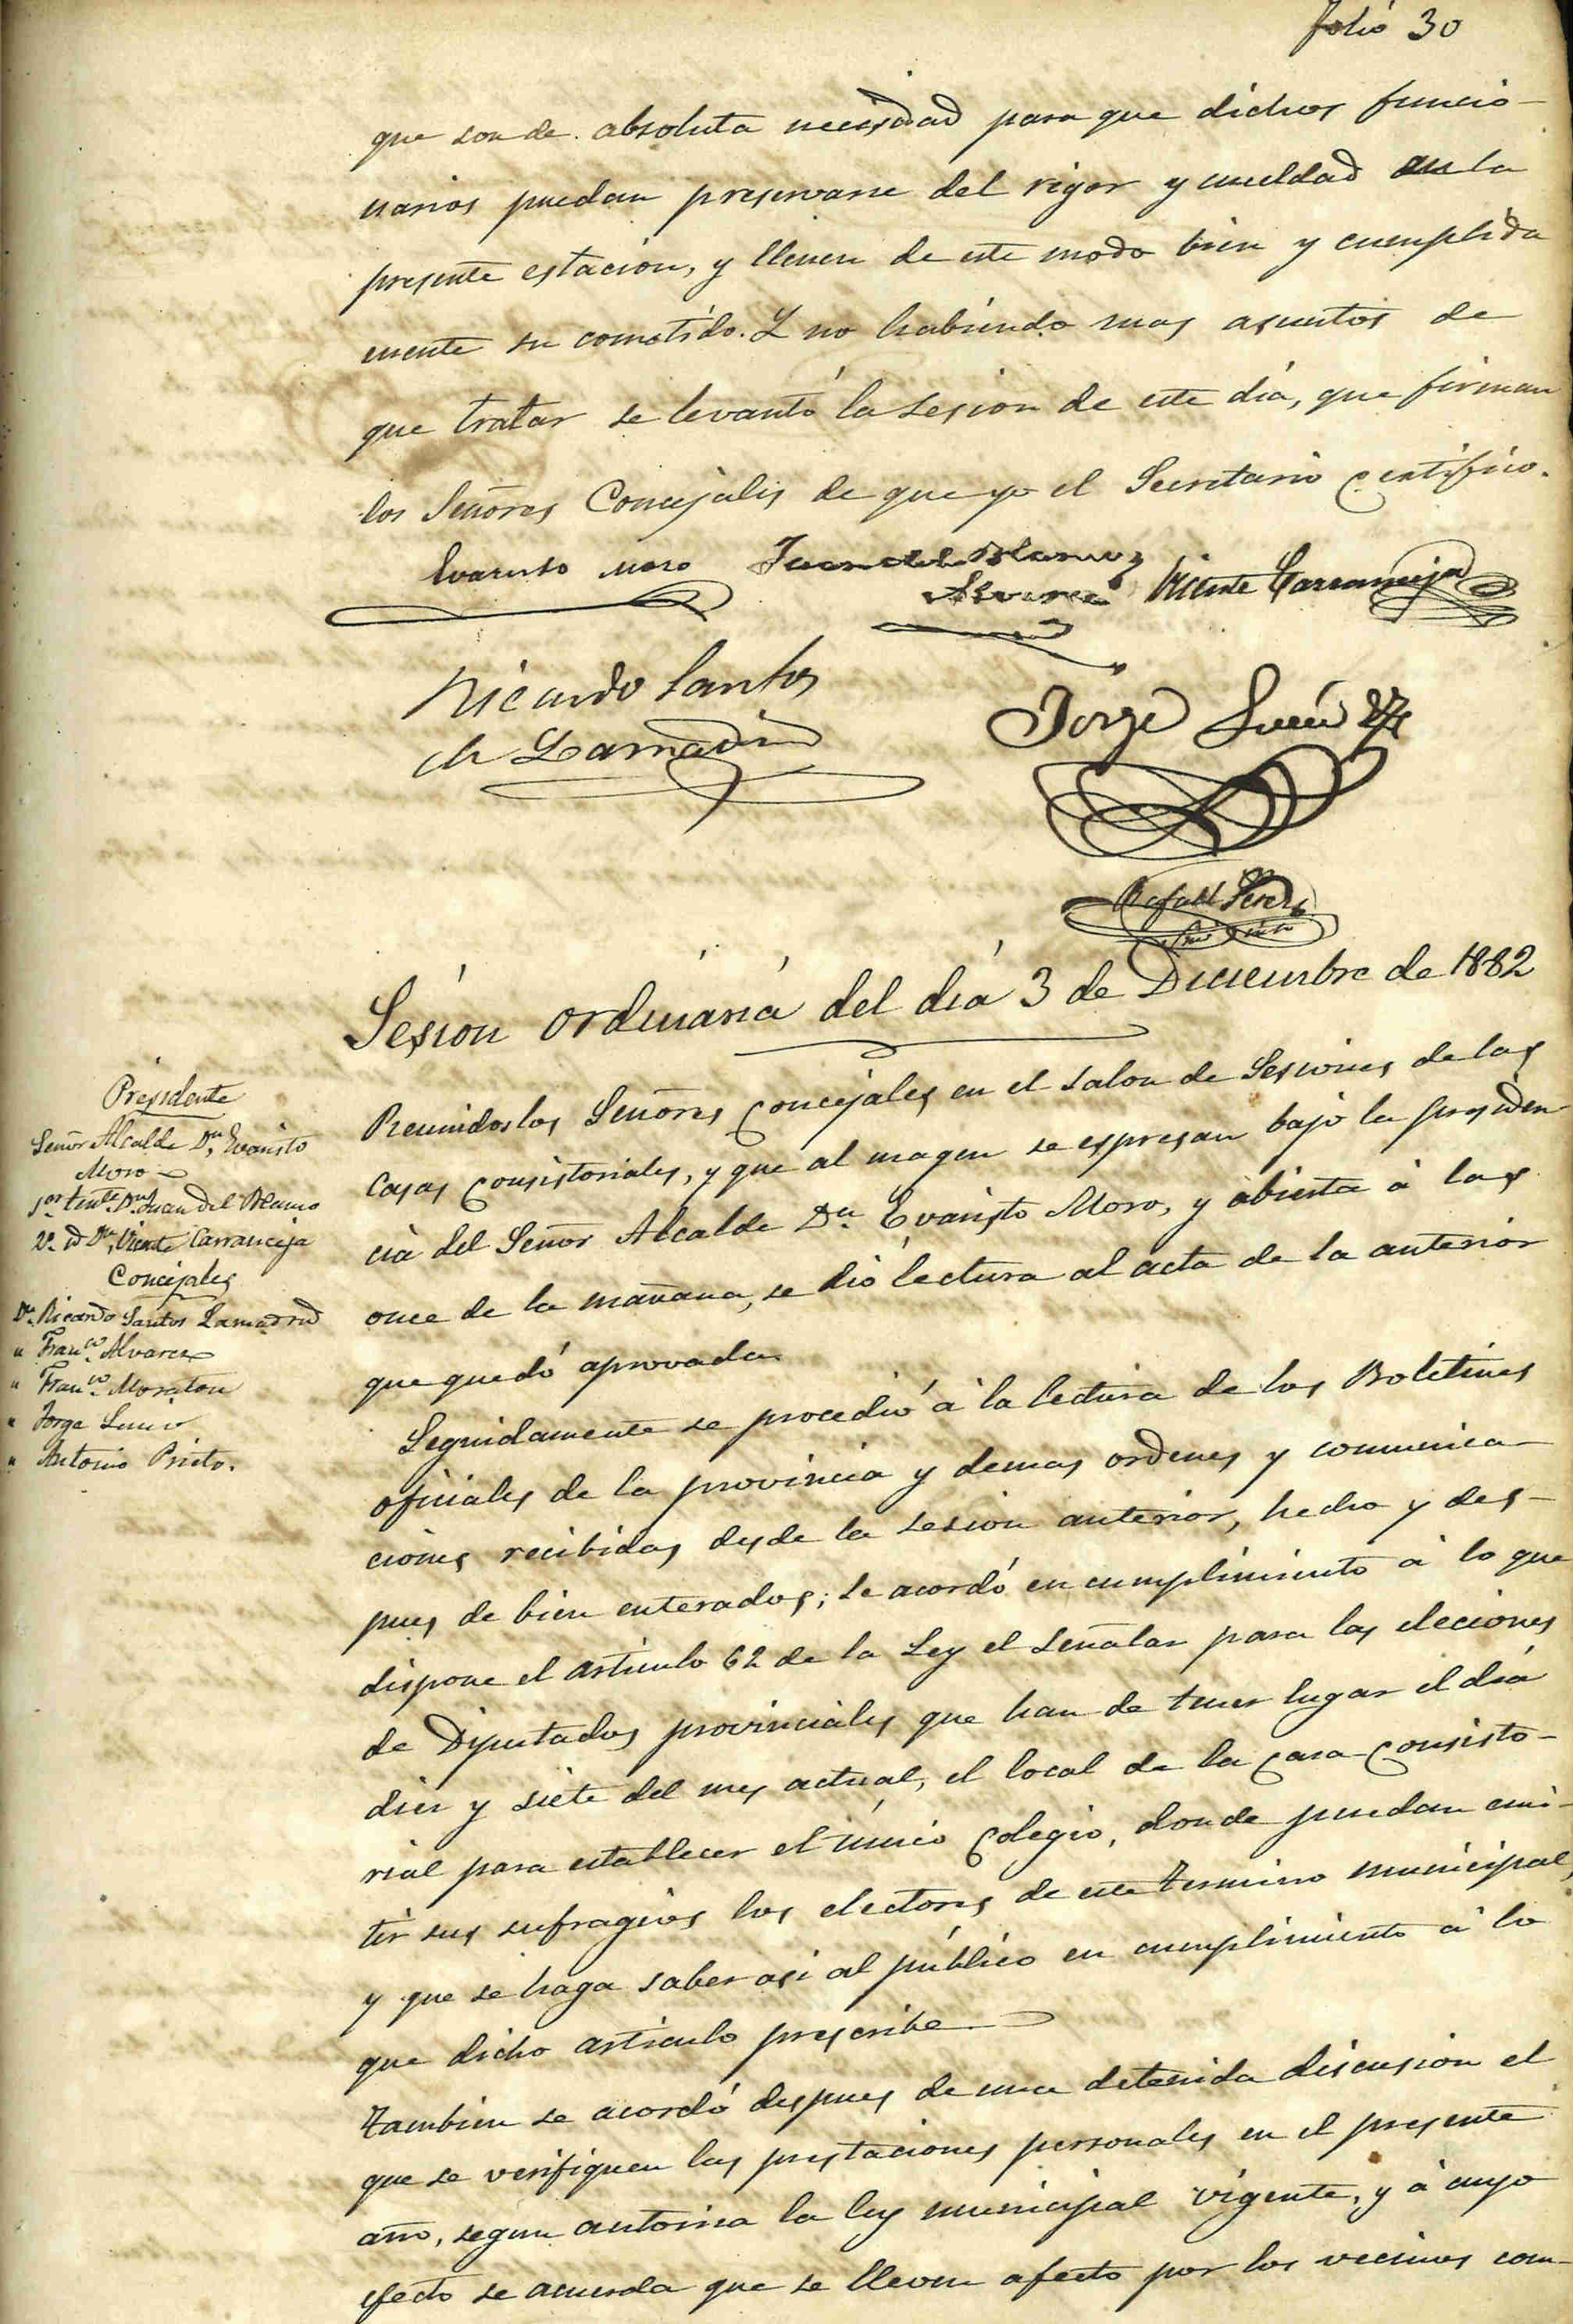 Folio 30
que son de absoluta necesidad para que dichos funcio-
narios puedan preservarse del rigor y crueldad en la
presente estación, y llenen de este modo bien y cumplida
mente su cometido. Y no habiendo mas asuntos de
que tratar se levantó la sesion de este día, que firman
los Señores Concejales de que yo el Secretario certifico.
Evaristo Moro Juan del Blanco Vicente Carranceja
Alvarez
Ricardo Santos Jorge Lucio
de Lamadrid
Rafael Perez
Sesión ordinária del día 3 de Diciembre de 1882
Presidente
Señor Alcalde Dn. Evaristo
Moro
1er. tente. Dn. Juan del Blanco
2o. id Dn. Vicente Carranceja
Concejales
Dn. Ricardo Santos Lamadrid
" Franco. Alvarez
" Franco. Moraton
" Jorge Lucio
" Antonio Prieto.
Reunidos los Señores Concejales en el salon de Sesiones de las
Casas Consistoriales, y que al magen se espresan bajo la presiden
cia del Señor Alcalde Dn Evaristo Moro, y abierta á las
once de la mañana, se dió lectura al acta de la anterior
que quedó aprovada.
Seguidamente se procedió á la lectura de los Boletines
oficiales de la provincia y demas ordenes y comunica-
ciones recibidas desde la sesion anterior, hecho y des-
pues de bien enterados; se acordó en cumplimiento á lo que
dispone el articulo 62 de la Ley el señalar para las eleciones
de Diputados provinciales que han de tener lugar el día
diez y siete del mes actual, el local de la Casa-Consisto-
rial para establecer el único Colegio, donde puedan emi-
tir sus sufragios los electores de este termino municipal,
y que se haga saber asi al público en cumplimiento á lo
que dicho articulo prescribe
Tambien se acordó despues de una detenida discusion el
que se verifiquen las prestaciones personales en el presente
año, segun autoriza la ley municipal vigente, y á cuyo
efecto se acuerda que se lleven afecto por los vecinos com-